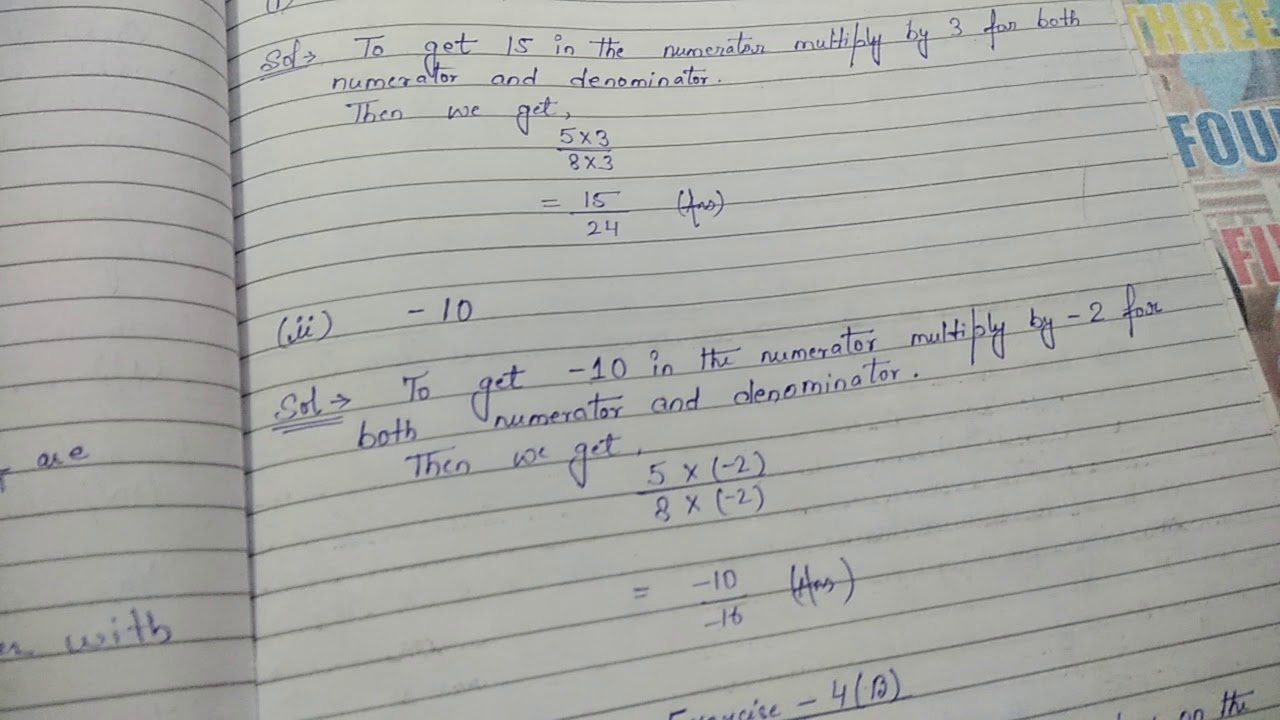 (i)
Sol→ To get 15 in the numerator multiply by 3 for both
numerator and denominator.
Then we get,
5×3
8×3
= 15
24 (Ans)
(ii) -10
Sol→ To get -10 in the numerator multiply by -2 for
both numerator and denominator.
Then we get,
5 × (-2)
8 × (-2)
= -10 (Ans)
-16
Exercise - 4(B)
on the
are
with
THREE
FOU
FI